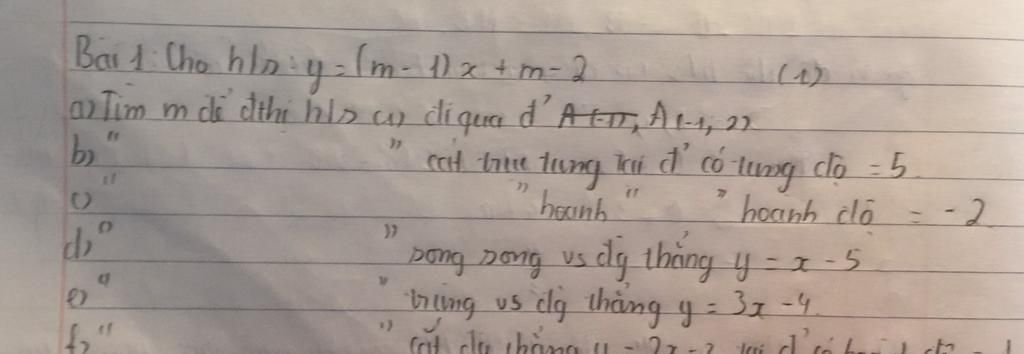 Bài 1: Cho h/s: y = (m-1)x + m-2 (1)
a) Tìm m để đthị h/s (1) đi qua đ' A(-1, A(-1, 2)
b) " " cắt trục tung tại đ' có tung độ = 5
c) " " hoành " " hoành độ = -2
d) " " song song vs đg thẳng y = x - 5
e) " " trùng vs đg thẳng y = 3x - 4
f) " " cắt đg thẳng y = 2x - 3 tại đ' có